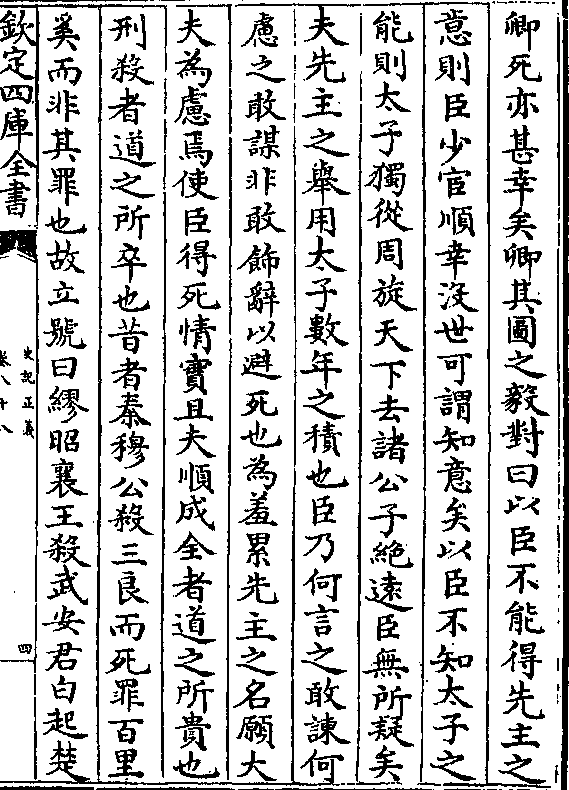 卿死亦甚幸矣卿其圖之毅對曰以臣不能得先主之
意則臣少宦順幸沒世可謂知意矣以臣不知太子之
能則太子獨從周旋天下去諸公子絶逺臣無所疑矣
夫先主之舉用太子數年之積也臣乃何言之敢諫何
慮之敢謀非敢飾辭以避死也為羞累先主之名願大
夫為慮焉使臣得死情實且夫順成全者道之所貴也
刑殺者道之所卒也昔者秦穆公殺三良而死罪百里
奚而非其罪也故立號曰繆昭襄王殺武安君白起楚
欽定四庫全書
史記正義
卷八十八
四